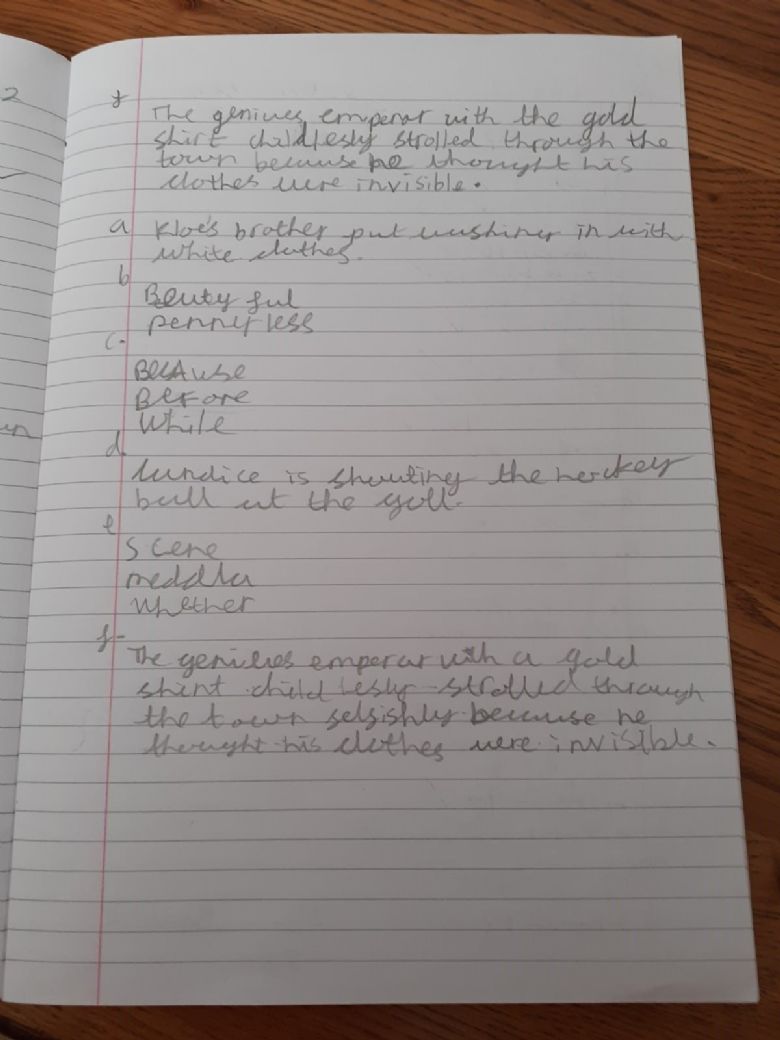 2
f
The geniues emperar with the gold
shirt childlesly strolled through the
town because he thought his
clothes were invisible.
a Kloe's brother put washing in with
white clothes.
b
Beuty ful
pennyless
c.
BecAuse
Before
While
d
is shouting the hockey
ball at the goll.
e
scene
meddla
whether
f-
The geniues emperar with a gold
shirt child lesly strolled through
the town selfishly because he
thought his clothes were invisible.